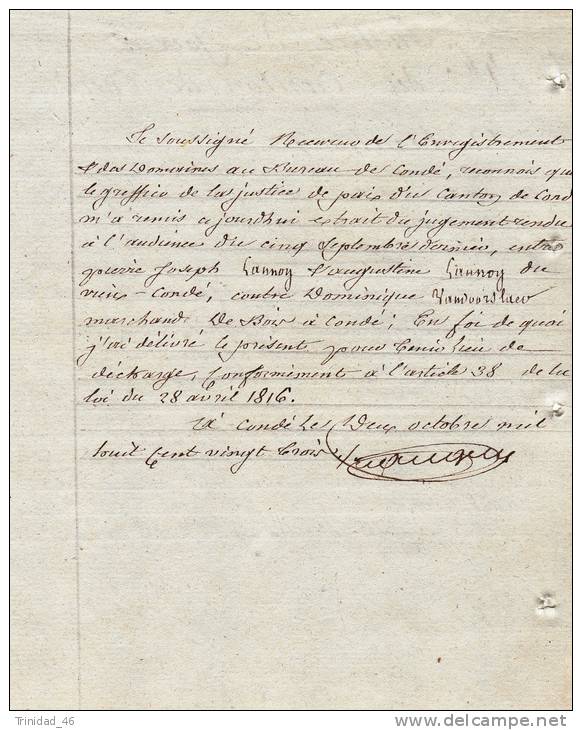 Je soussigné Receveur de l'Enregistrement
& des Domaines au Bureau de Condé, reconnois que
le greffier de la justice de paix du Canton de Condé
m'a remis cejourdhui extrait du jugement rendu
à l'audience du cinq Septembre dernier, entre
pierre Joseph Lannoy & augustine Lannoy du
vieux-Condé, contre Dominique
marchand De Bois à Condé; En foi de quoi
j'ai délivré le présent pour tenir lieu de
décharge, Conformément à l'article 38 de la
loi du 28 avril 1816.
à Condé Le Deux octobre mil
huit Cent vingt trois
Trinidad_46
delcampe.net